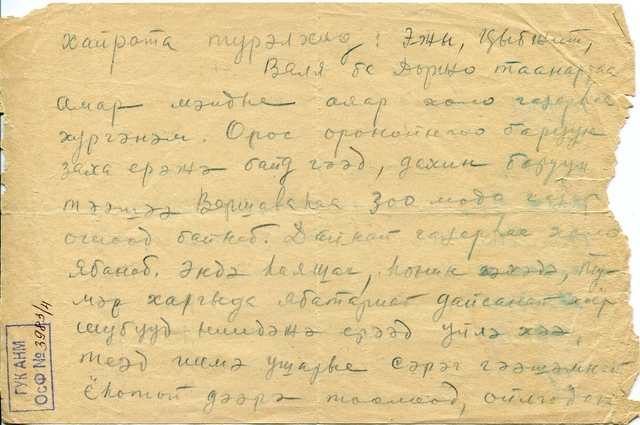 хайрата түрэлхид! Эжы, Цыбжит,
Валя ба Доржо таанартаа
амар мэндые алар холо газарһаа
хүргэнэм. Орос оронойнгоо баруун
заха ерэжэ байд гээд, дахин баруун
тээшээ Варшаваһаа 300 модо газар
ошоод байнаб. Дайнай газарһаа холо
ябанаб. Эндэ һаяшаг, һонин гэхэдэ, Түмэр
харгыда ябатарнай дайсанай хар
шубууд ниидэжэ ерээд үйлэ хээ,
теэд иимэ ушарые сэрэг гээшэмнай
Ёһотой дээрэ тоолоод, ойлгодог
ГУК АНМ
ОСФ № 3983/4